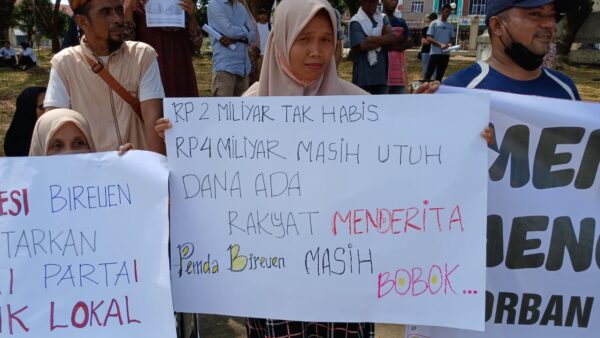 RP 2 MILIYAR TAK HABIS
RP 4 MILIYAR MASIH UTUH
DANA ADA
RAKYAT MENDERITA
Pemda Bireuen MASIH
BOBOK...
ESI BIREUEN
TARKAN
I PARTAI
IK LOKAL
MEN
MENG
ORBAN